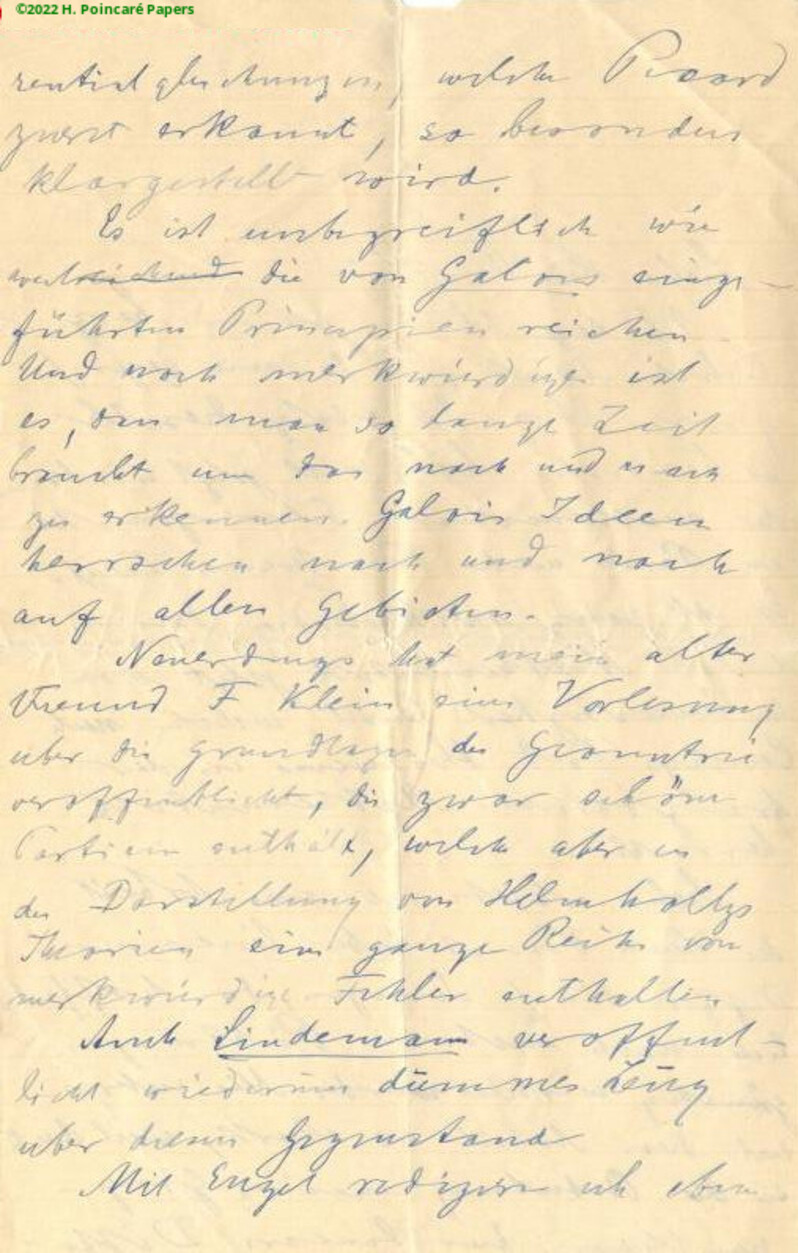 ©2022 H. Poincaré Papers
rentialgleichungen, welche Picard
zuerst erkannt, so besonders
klargestellt wird.
Es ist unbegreiflich wie
weit die von Galois einge-
führten Principien reichen
Und noch merkwürdiger ist
es, dass man so lange Zeit
braucht um das nach und nach
zu erkennen. Galois Ideen
herrschen nach und nach
auf allen Gebieten.
Neuerdings hat mein alter
Freund F Klein eine Vorlesung
über die Grundlagen der Geometrie
veroffentlicht, die zwar schöne
Partien enthält, welche aber in
der Darstellung von Helmholtzs
Theorien eine ganze Reihe von
merkwürdige Fehler enthalten
Auch Lindemann veroffent-
licht wiederum dummes Zeug
uber diesen Gegenstand
Mit Engel redigire ich eben